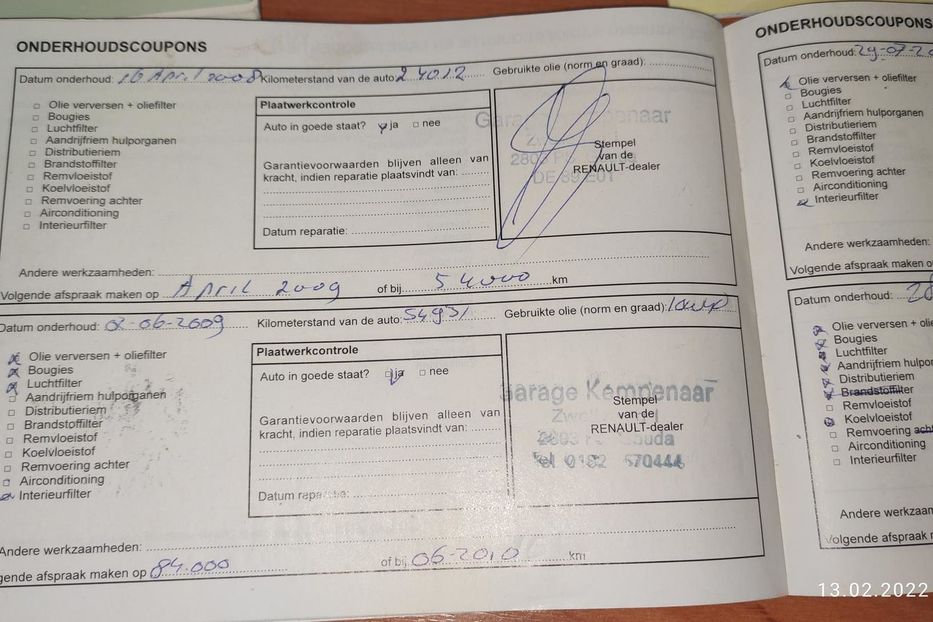 ONDERHOUDSCOUPONS
Datum onderhoud: 16 April 2008 Kilometerstand van de auto: 24012 Gebruikte olie (norm en graad):
Olie verversen + oliefilter
Bougies
Luchtfilter
Aandrijfriem hulporganen
Distributieriem
Brandstoffilter
Remvloeistof
Koelvloeistof
Remvoering achter
Airconditioning
Interieurfilter
Plaatwerkcontrole
Auto in goede staat? ja nee
Garantievoorwaarden blijven alleen van
kracht, indien reparatie plaatsvindt van:
Datum reparatie:
Stempel
van de
RENAULT-dealer
Andere werkzaamheden:
Volgende afspraak maken op April 2009 of bij 54000 km
Datum onderhoud: 02-06-2009 Kilometerstand van de auto: 54931 Gebruikte olie (norm en graad):
Olie verversen + oliefilter
Bougies
Luchtfilter
Aandrijfriem hulporganen
Distributieriem
Brandstoffilter
Remvloeistof
Koelvloeistof
Remvoering achter
Airconditioning
Interieurfilter
Plaatwerkcontrole
Auto in goede staat? ja nee
Garantievoorwaarden blijven alleen van
kracht, indien reparatie plaatsvindt van:
Datum reparatie:
Garage Kempenaar
Stempel
van de
RENAULT-dealer
Gouda
Tel 0182 570444
Andere werkzaamheden:
gende afspraak maken op 84.000 of bij 06-2010 km
ONDERHOUDSCOUPONS
Datum onderhoud: 29-07-20
Olie verversen + oliefilter
Bougies
Luchtfilter
Aandrijfriem hulporganen
Distributieriem
Brandstoffilter
Remvloeistof
Koelvloeistof
Remvoering achter
Airconditioning
Interieurfilter
Andere werkzaamheden:
Volgende afspraak maken o
Datum onderhoud:
Olie verversen + olie
Bougies
Luchtfilter
Aandrijfriem hulpor
Distributieriem
Brandstoffilter
Remvloeistof
Koelvloeistof
Remvoering ach
Airconditioning
Interieurfilter
Andere werkzaam
Volgende afspraak m
13.02.2022